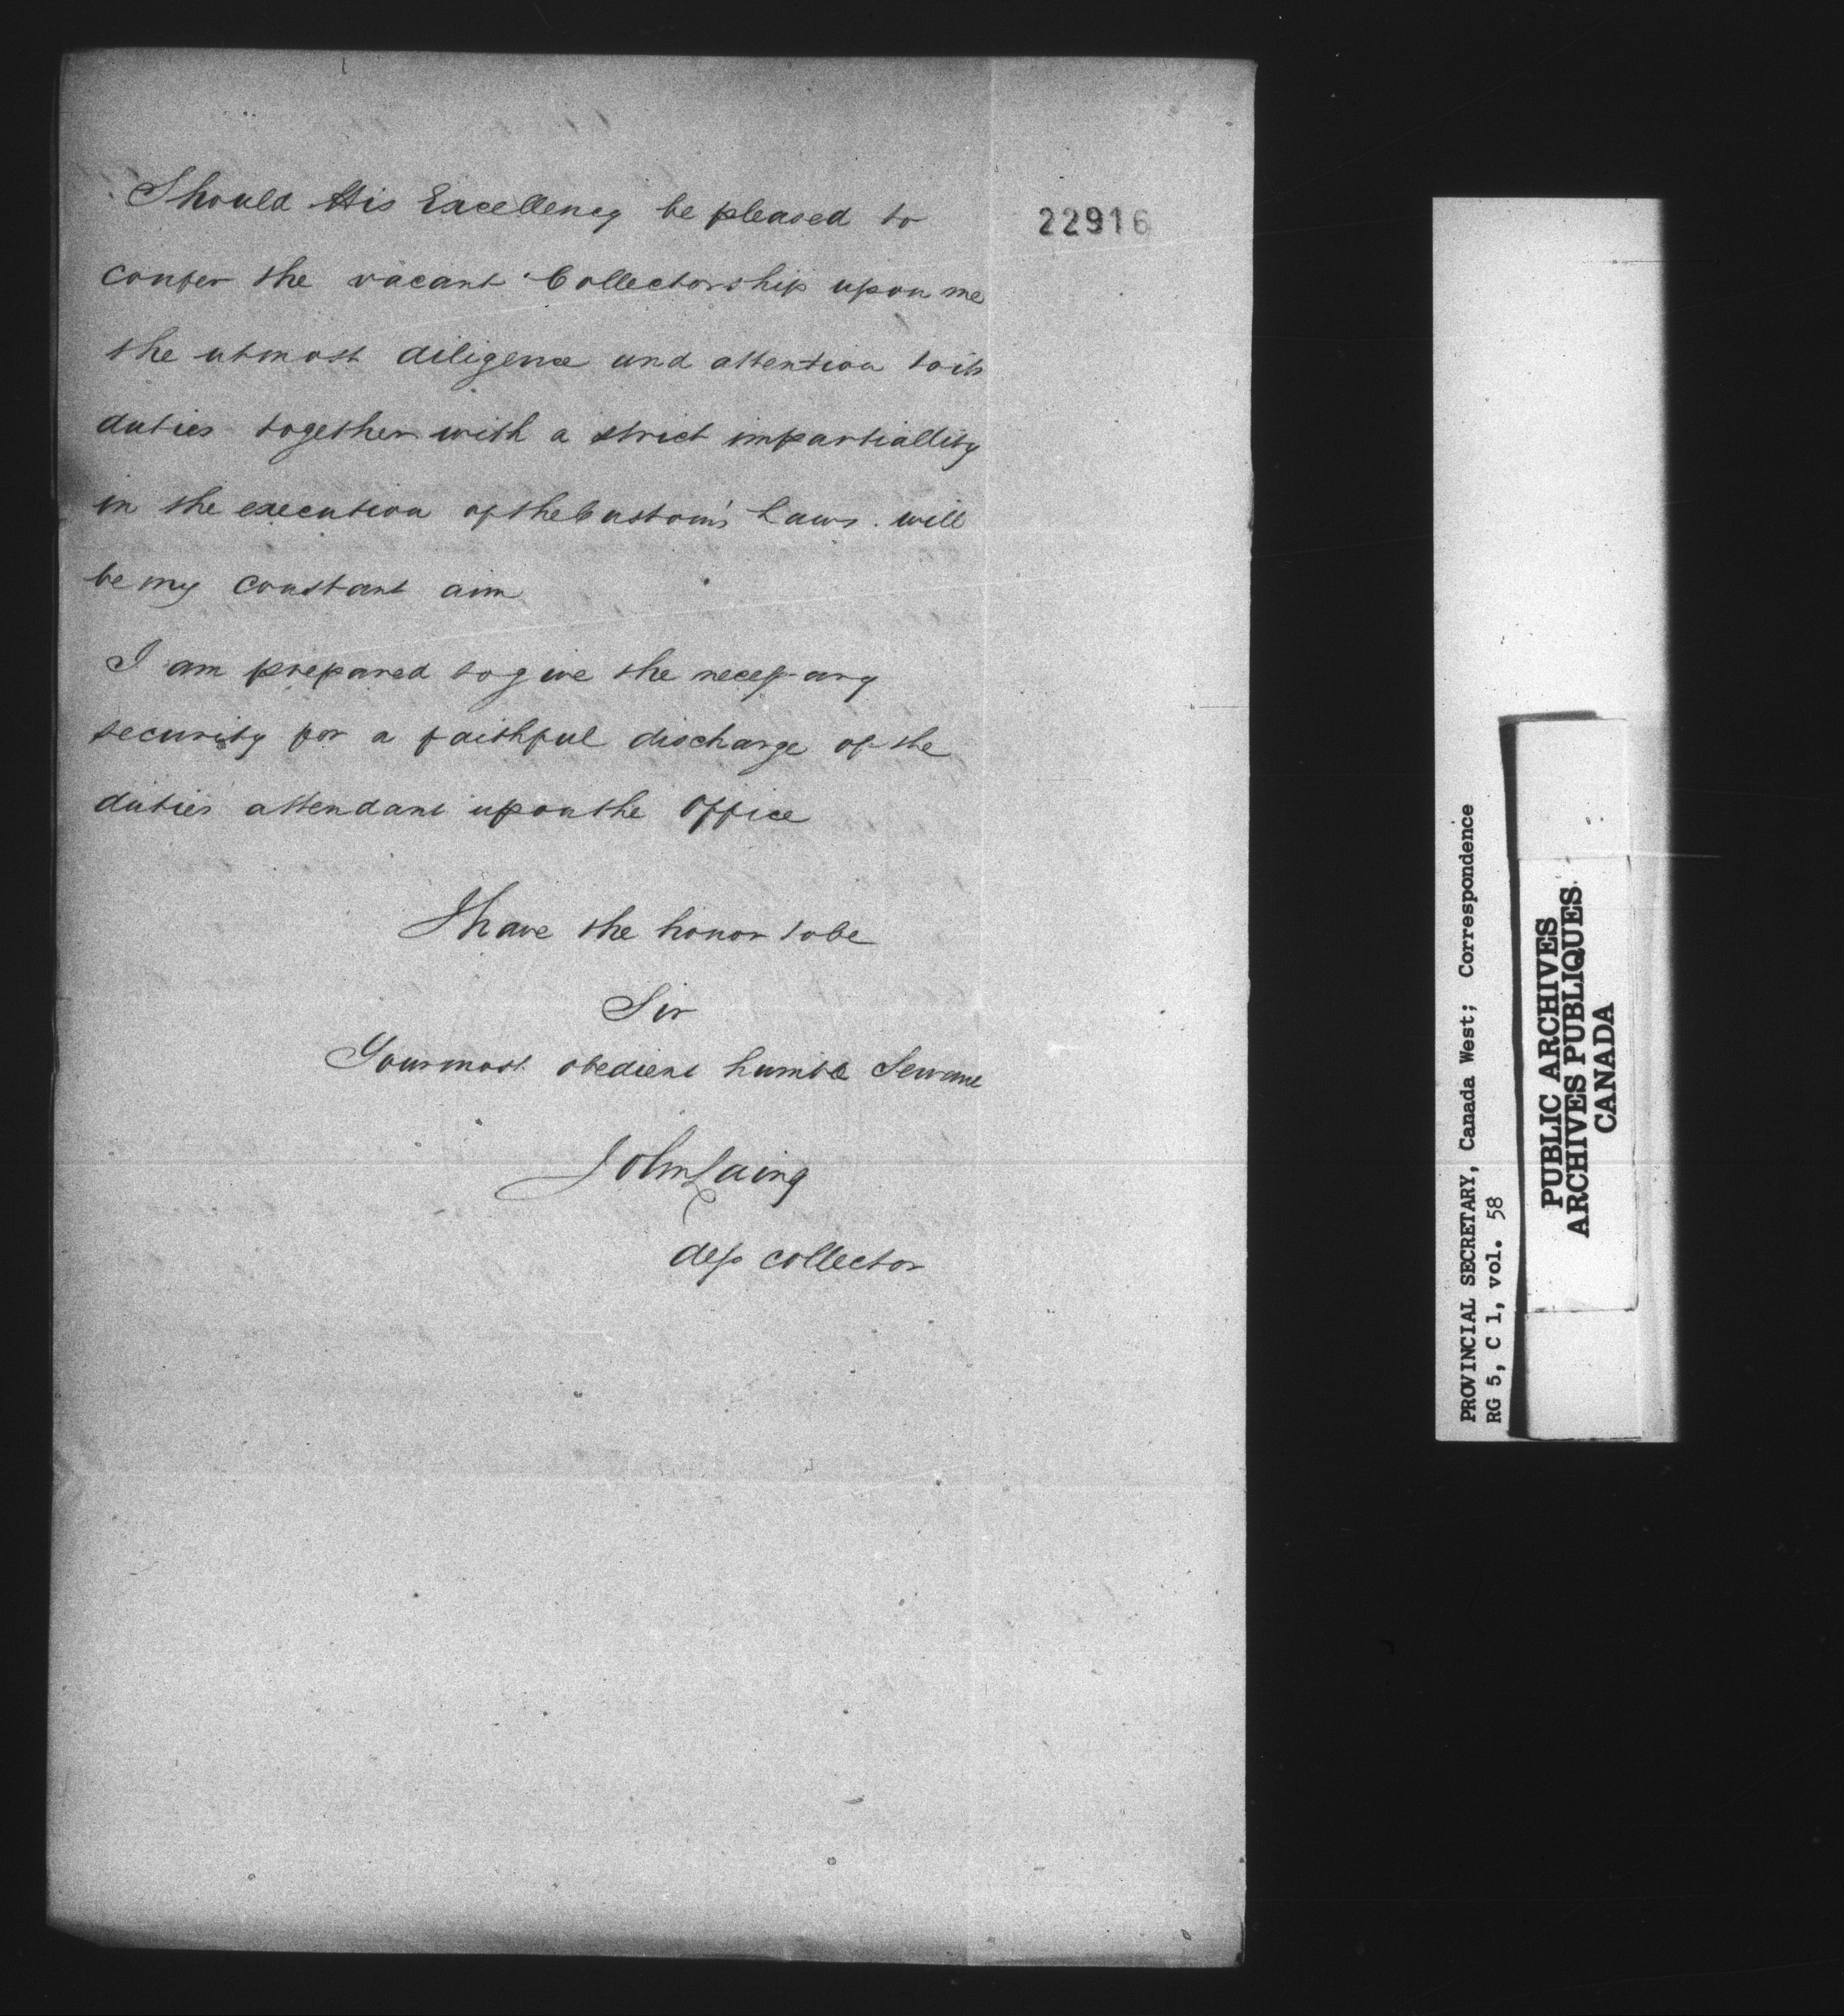 Should His Excellency be pleased to
22916
confer the vacant Collectorship upon me
the utmost diligence and attention to its
duties together with a strict impartiallity
in the execution of the Custom's Laws. will
be my constant aim
I am prepared to give the necessary
security for a faithful discharge of the
duties attendant upon the Office
I have the honor to be
Sir
Your most obedient humble Servant
John Laing
dep collector
PROVINCIAL SECRETARY, Canada West; Correspondence
RG 5, C 1, vol. 58
PUBLIC ARCHIVES
ARCHIVES PUBLIQUES
CANADA